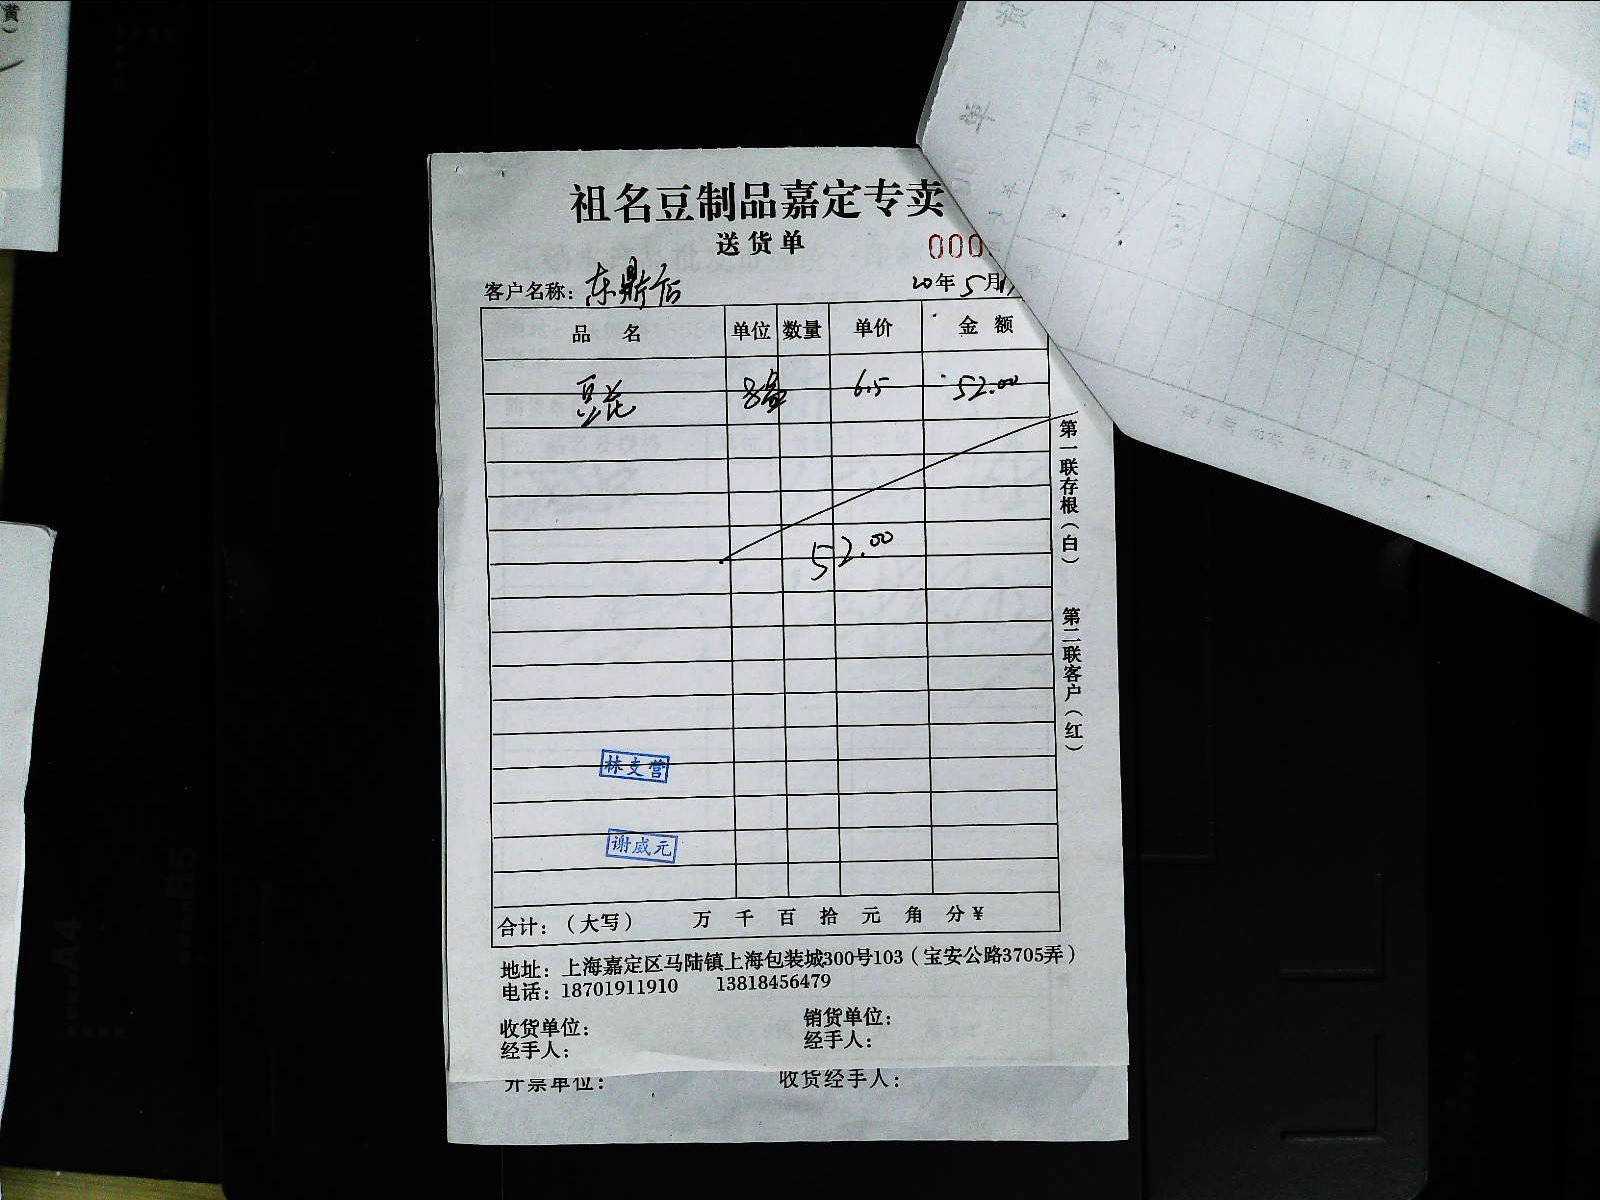 祖名豆制品嘉定专卖
送货单 000
客户名称：东鼎店 20年5月
品 名 单位 数量 单价 金 额
豆花 8盒 6.5 52.00
52.00
第一联存根（白） 第二联客户（红）
林支营
谢威元
合计：（大写） 万 千 百 拾 元 角 分 ¥
地址：上海嘉定区马陆镇上海包装城300号103（宝安公路3705弄）
电话：18701911910 13818456479
收货单位： 销货单位：
经手人： 经手人：
开票单位： 收货经手人：